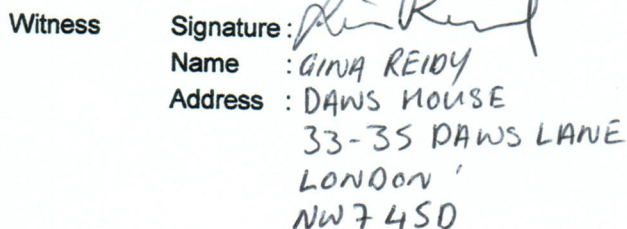 Witness Signature :
Name : GINA REIDY
Address : DAWS HOUSE
33-35 DAWS LANE
LONDON
NW7 4SD